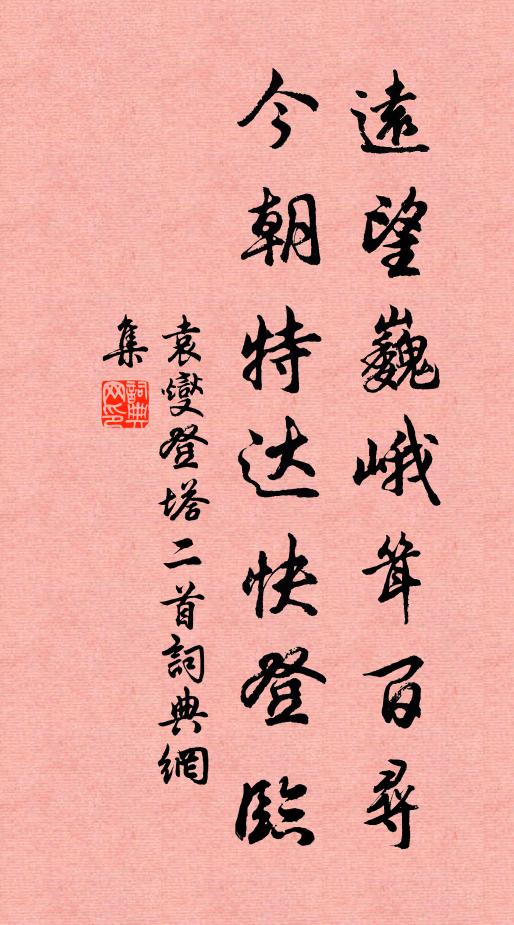 遠望巍峨聳百尋
今朝特达快登臨
袁燮登塔二首詞典網
集
詞典网印